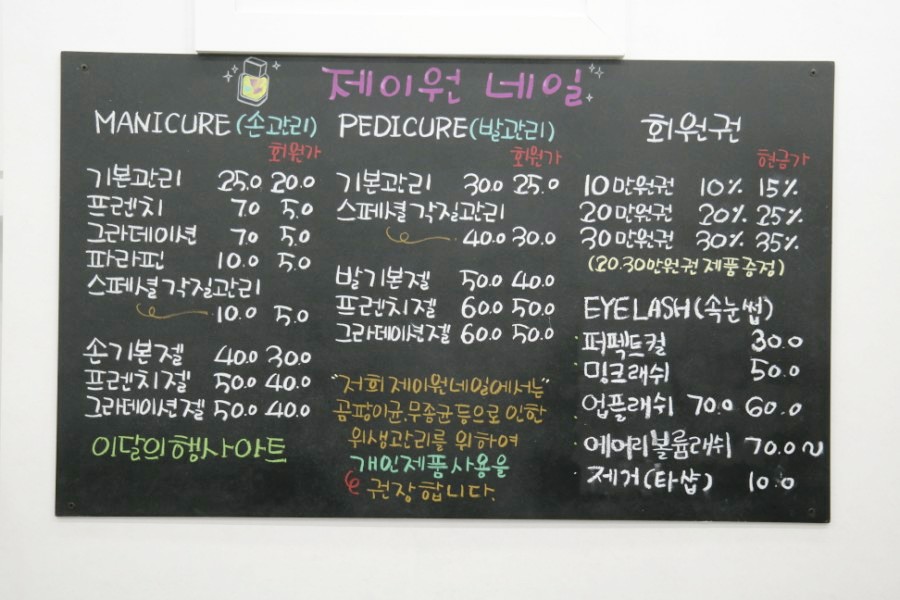 제이원 네일
MANICURE (손관리)
회원가
기본관리 25.0 20.0
프렌치 7.0 5.0
그라데이션 7.0 5.0
파라핀 10.0 5.0
스페셜각질관리
10.0 5.0
손기본젤 40.0 30.0
프렌치젤 50.0 40.0
그라데이션젤 50.0 40.0
이달의행사아트
PEDICURE (발관리)
회원가
기본관리 30.0 25.0
스페셜각질관리
40.0 30.0
발기본젤 50.0 40.0
프렌치젤 60.0 50.0
그라데이션젤 60.0 50.0
"저희 제이원네일에서는"
곰팡이균,무종균등으로 인한
위생관리를 위하여
개인제품사용을
권장합니다.
회원권
현금가
10만원권 10% 15%
20만원권 20% 25%
30만원권 30% 35%
(20.30만원권 제품증정)
EYELASH (속눈썹)
퍼펙트컬 30.0
밍크래쉬 50.0
업플래쉬 70.0 60.0
에어리볼륨래쉬 70.0~
제거(타샵) 10.0